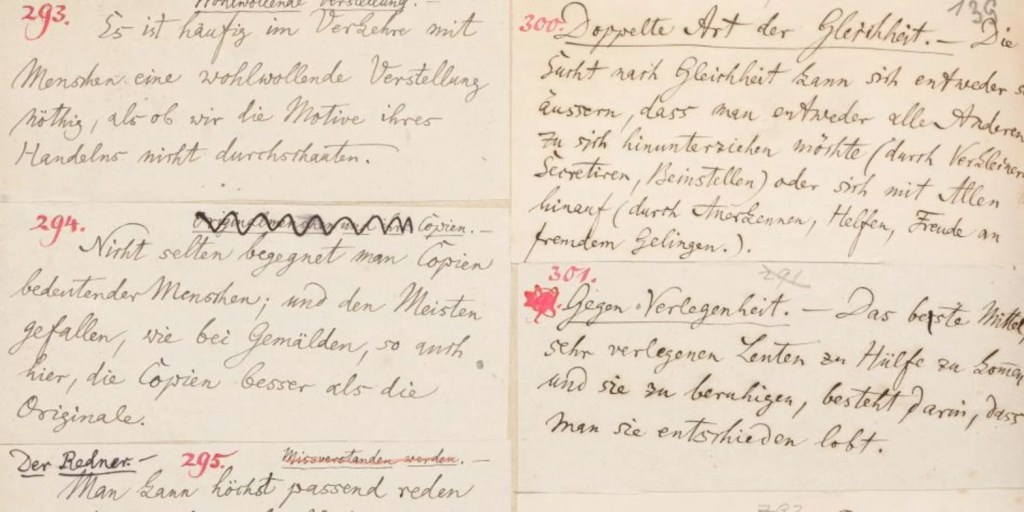 293.
Wohlwollende Verstellung. —
Es ist häufig im Verkehre mit
Menschen eine wohlwollende Verstellung
nöthig, als ob wir die Motive ihres
Handelns nicht durchschauten.
294.
Copien. —
Nicht selten begegnet man Copien
bedeutender Menschen; und den Meisten
gefallen, wie bei Gemälden, so auch
hier, die Copien besser als die
Originale.
Der Redner. — 295. Missverstanden werden. —
Man kann höchst passend reden
136
300. Doppelte Art der Gleichheit. — Die
Sucht nach Gleichheit kann sich entweder s
äussern, dass man entweder alle Anderen
zu sich hinunterziehen möchte (durch Verkleinern
Secretiren, Beinstellen) oder sich mit Allen
hinauf (durch Anerkennen, Helfen, Freude an
fremdem Gelingen.).
301.
Gegen Verlegenheit. — Das beste Mittel,
sehr verlegenen Leuten zu Hülfe zu komen
und sie zu beruhigen, besteht darin, dass
man sie entschieden lobt.